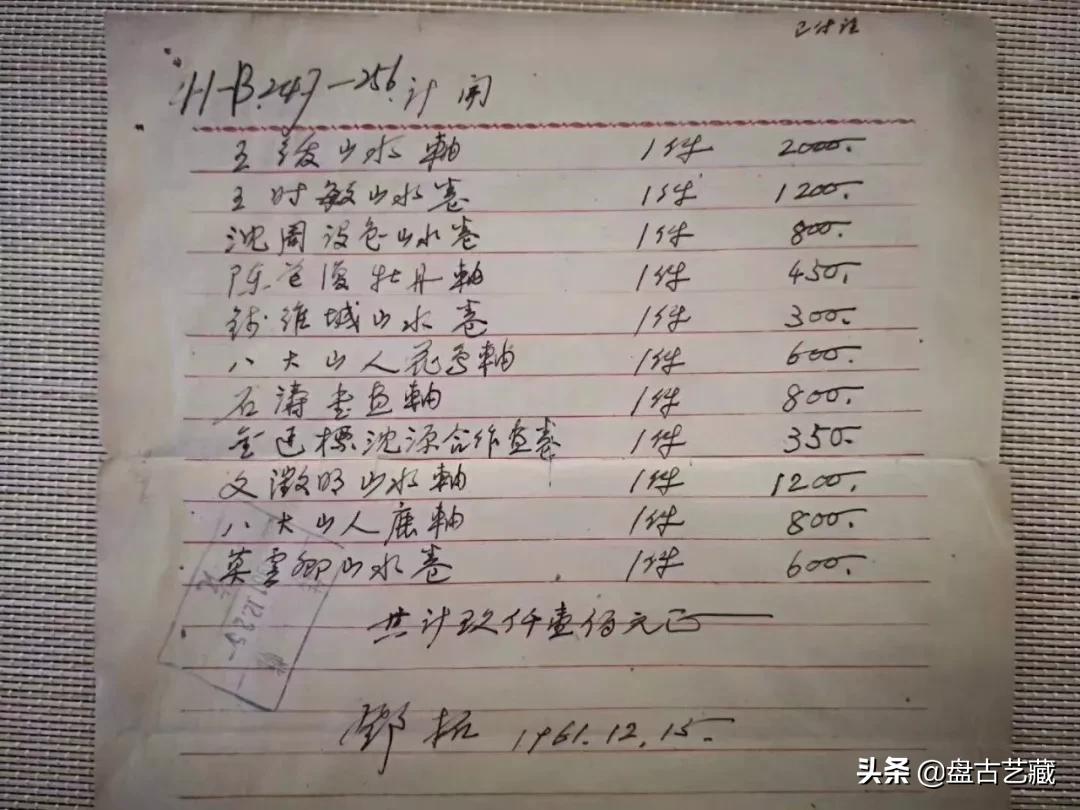 已付註
H-B.247—256.计开
王绂山水軸 1件 2000.
王时敏山水卷 1件 1200.
沈周设色山水卷 1件 800.
陈道復牡丹軸 1件 450.
钱维城山水卷 1件 300.
八大山人花鸟軸 1件 600.
石濤画軸 1件 800.
金廷標沈源合作画卷 1件 350.
文徵明山水軸 1件 1200.
八大山人鹿軸 1件 800.
莫雲卿山水卷 1件 600.
共计玖仟壹佰元正
1961.12.25
鄧拓 1961.12.15.
头条 @盘古艺藏